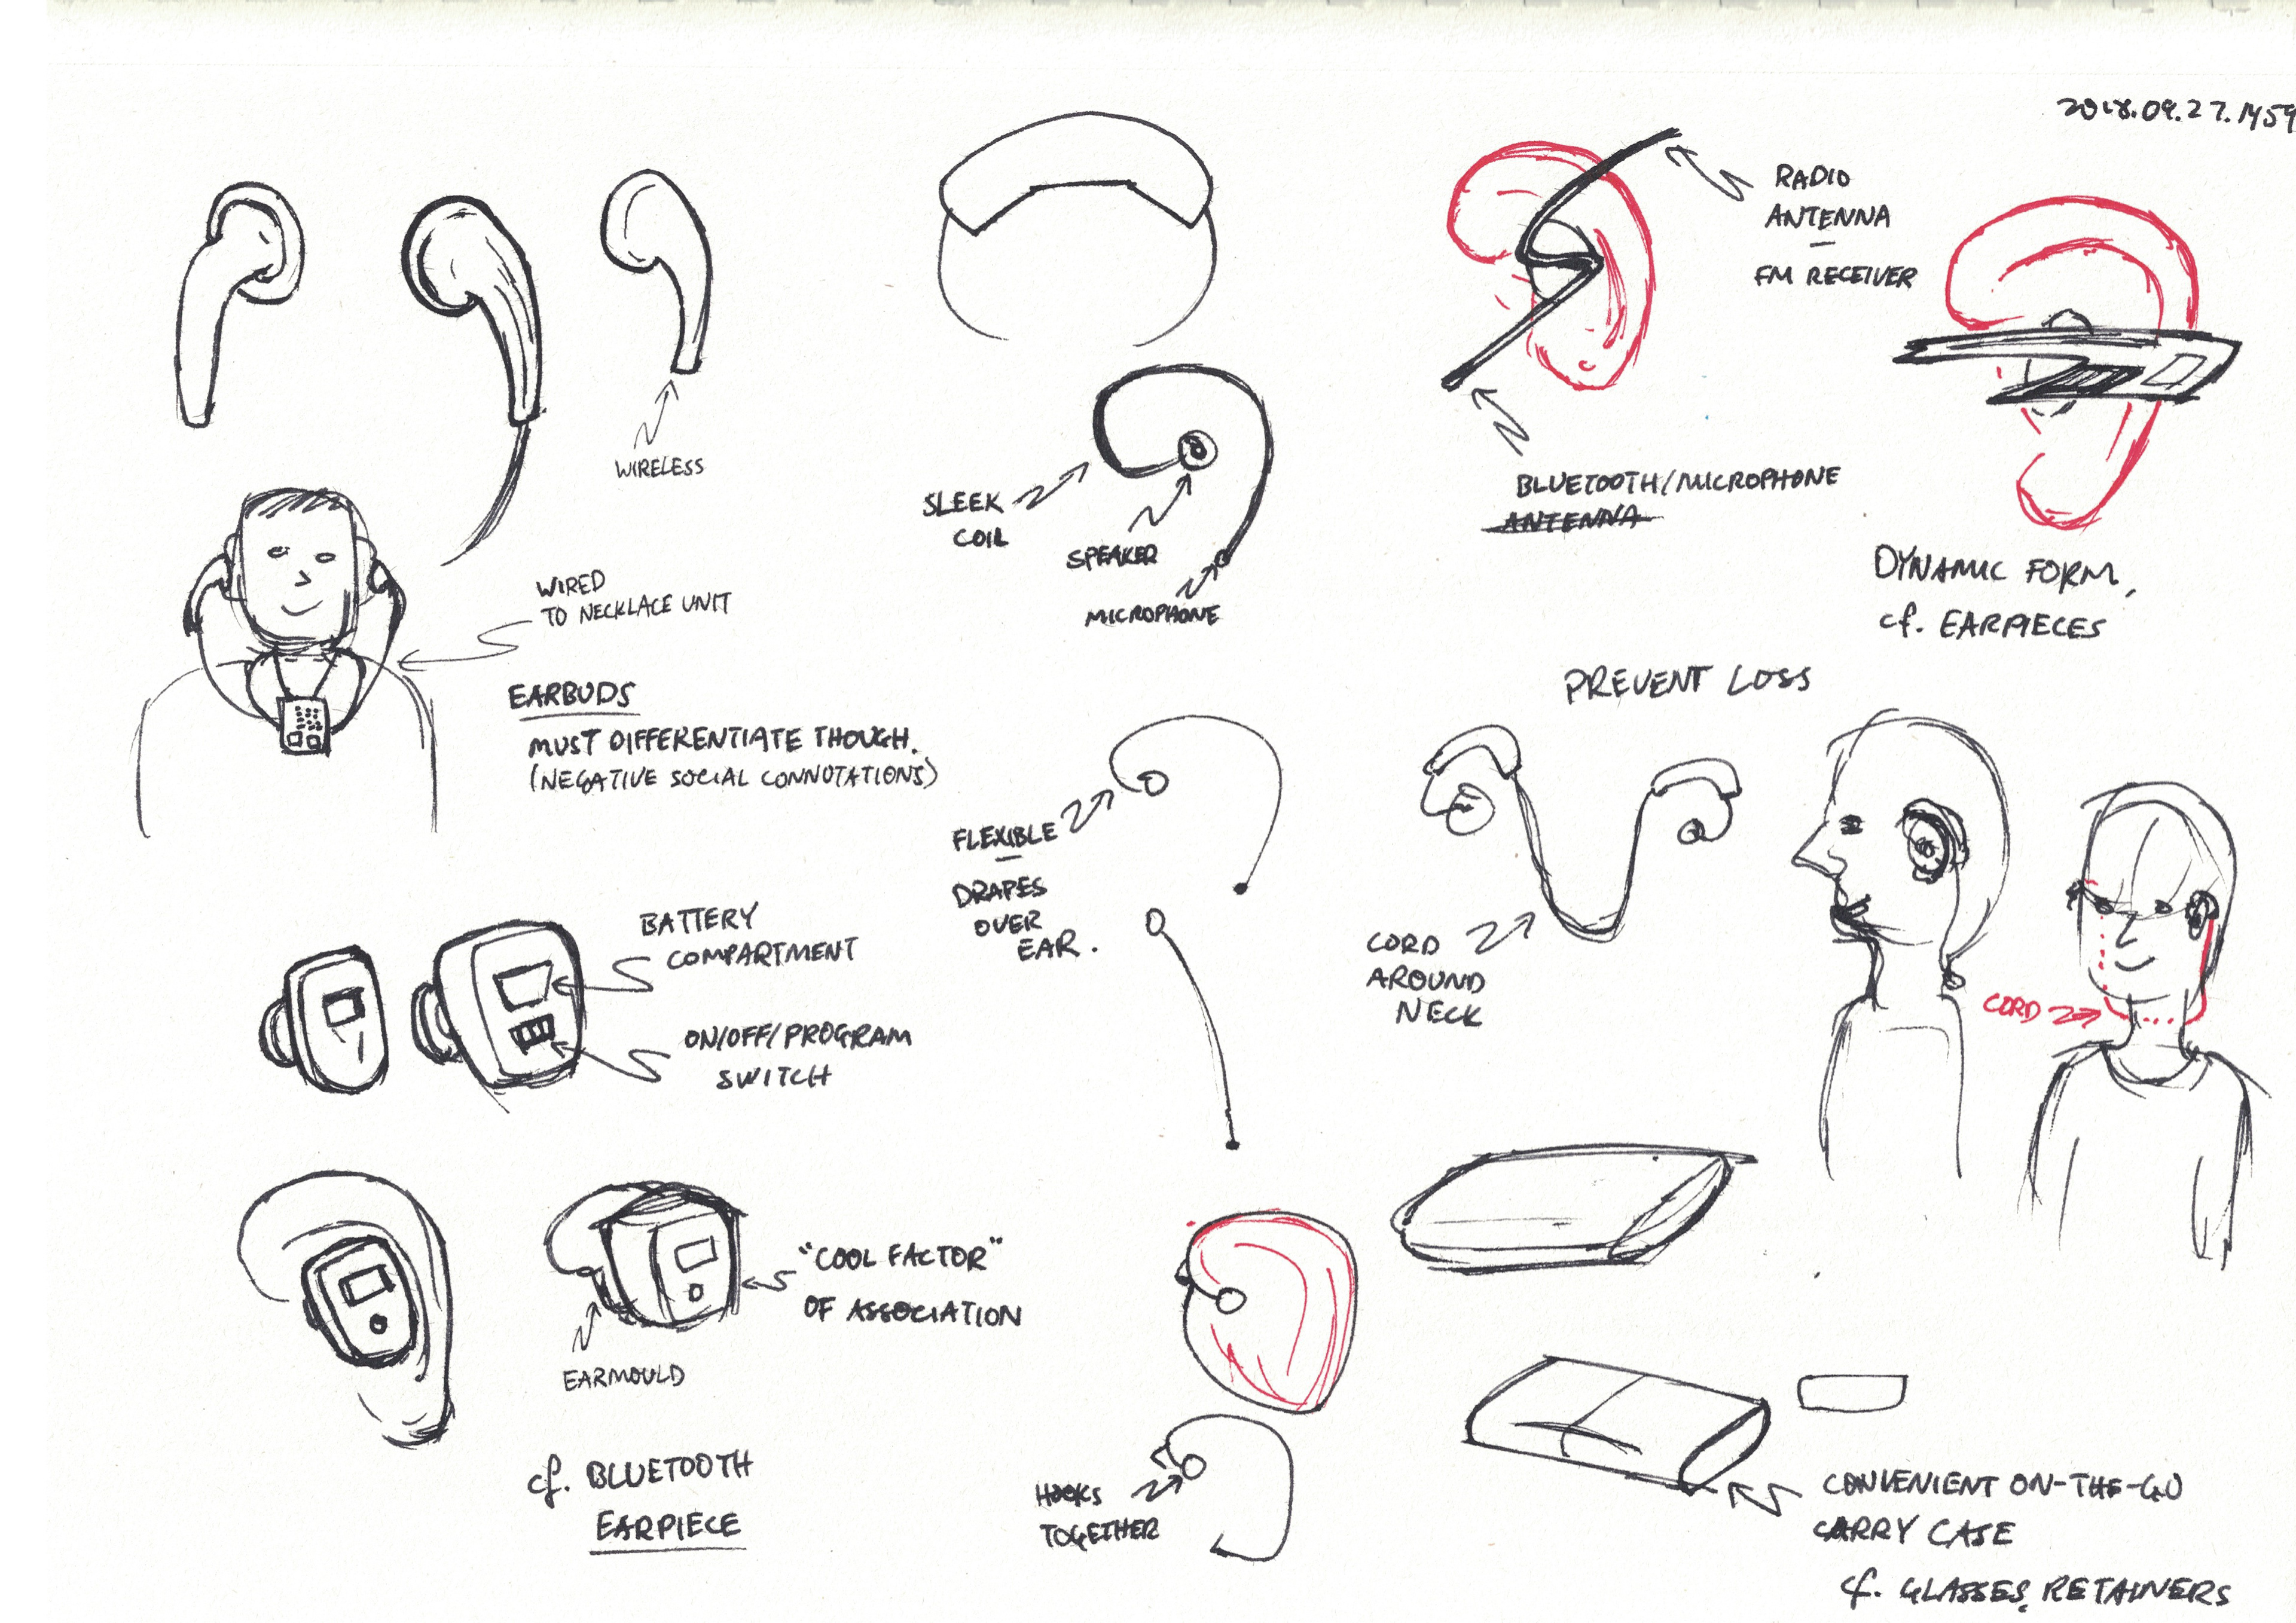 2018.09.27.1459
WIRELESS
WIRED
TO NECKLACE UNIT
EARBUDS
MUST DIFFERENTIATE THOUGH.
(NEGATIVE SOCIAL CONNOTATIONS)
BATTERY
COMPARTMENT
ON/OFF/PROGRAM
SWITCH
"COOL FACTOR"
OF ASSOCIATION
EARMOULD
cf. BLUETOOTH
EARPIECE
SLEEK
COIL
SPEAKER
MICROPHONE
FLEXIBLE
—
DRAPES
OVER
EAR.
HOOKS
TOGETHER
RADIO
ANTENNA
—
FM RECEIVER
BLUETOOTH/MICROPHONE
ANTENNA
DYNAMIC FORM,
cf. EARPIECES
PREVENT LOSS
CORD
AROUND
NECK
CORD
CONVENIENT ON-THE-GO
CARRY CASE
cf. GLASSES, RETAINERS